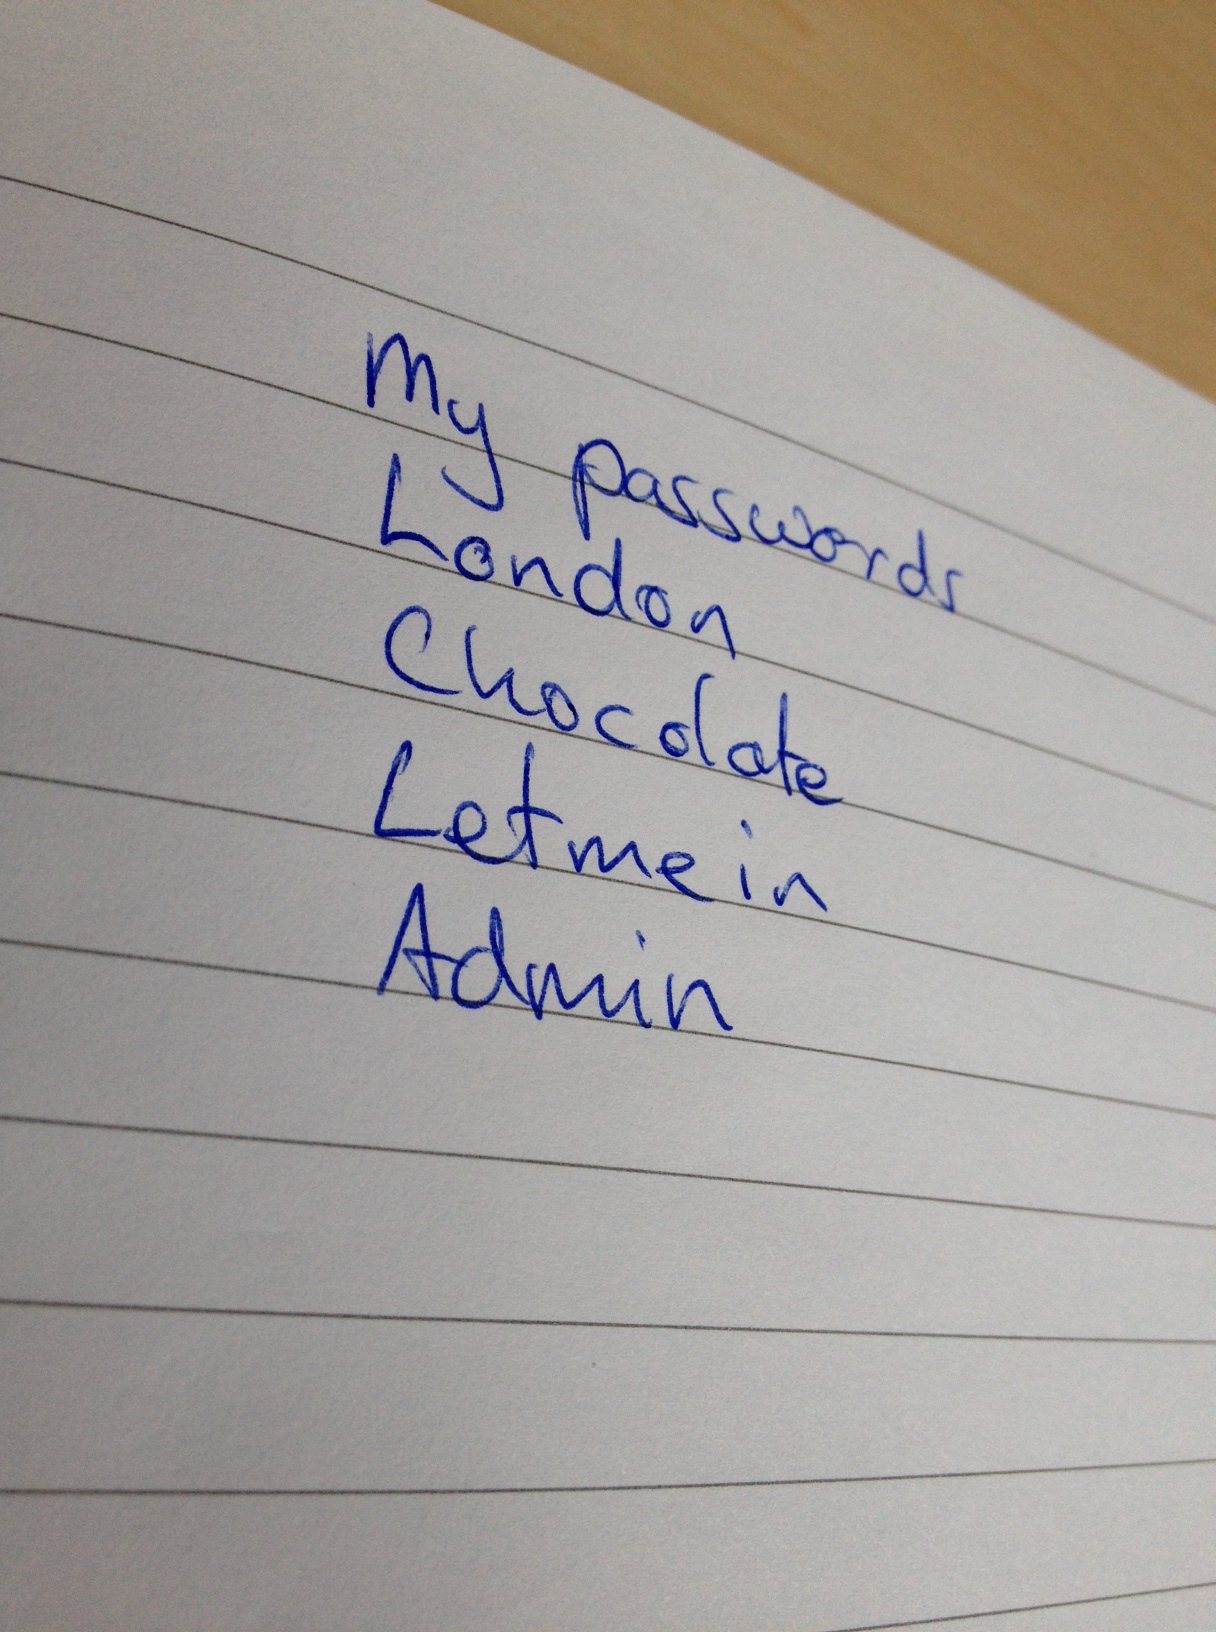 My passwords
London
Chocolate
Letmein
Admin